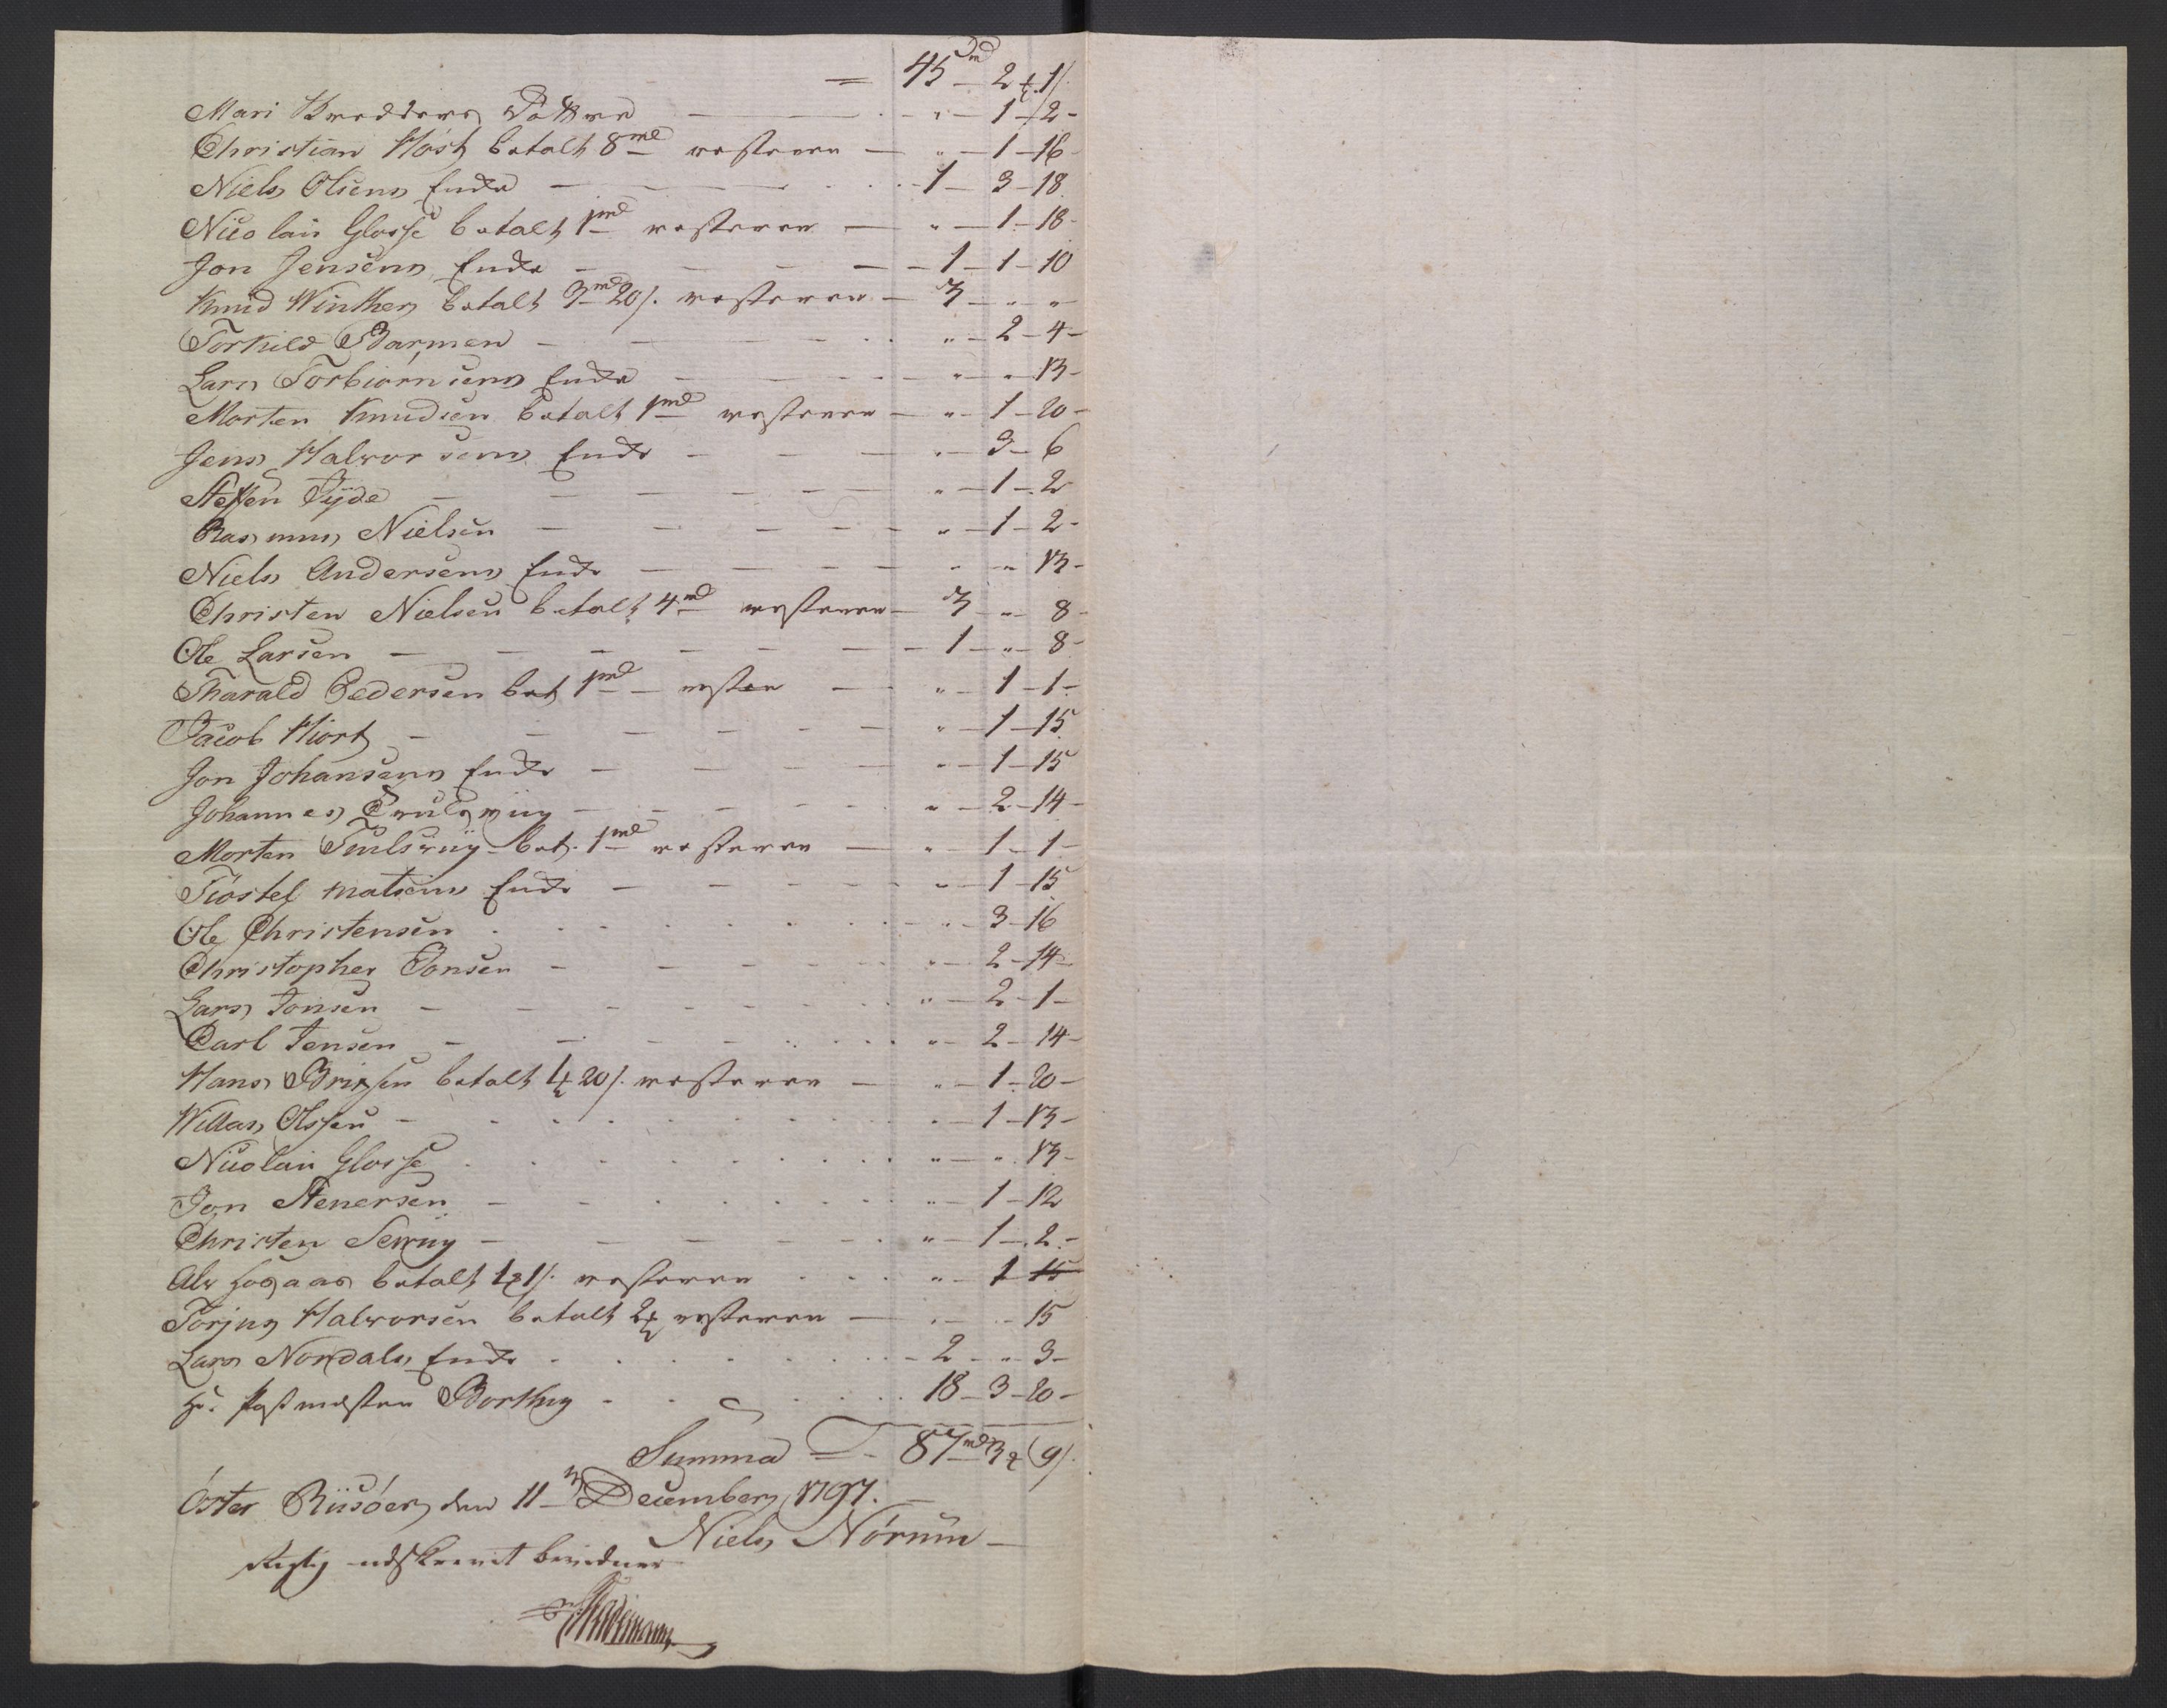 = 45 rd 2 ꝵ 1 s.
Mari Dattre — " — 1 - 2 -
Christian Høst betalt 8 md resterer — " — 1 - 16 -
Niels Olsens Enke — 1 — 3 - 18
Nicolai Glosse betalt 1 md resterer — " — 1 - 18 -
Jon Jensens Enke — 1 - 1 - 10
Knud Winther betalt 3 md 20 s. resterer — 3 — " — "
Torkild Barmen — " — 2 - 4 -
Lars Torbiørnsens Enke — " — " 13 -
Morten Knudsen betalt 1 md resterer — " — 1 - 20 -
Jens Halworsens Enke — " — 3 - 6
Steffen Tyde — " — 1 - 2
Rasmus Nielsen — " — 1 - 2 -
Niels Andersens Enke — " — " 13 -
Christen Nielsen betalt 4 md resterer — 3 — " 8 -
Ole Larsen — 1 — " — 8 -
Tharald Pedersen bet 1 md — rester — " — 1 - 1 -
Jacob Hiort — " — 1 - 15
Jon Johansens Enke — " — 1 - 15
Johannes — " — 2 - 14 -
Morten bet. 1 md resterer — " 1 - 1 -
Tiostel Matsens Enke — " — 1 - 15
Ole Christensen — " — 3 - 16
Christopher Jonsen — " — 2 - 14 -
Lars Jonsen — " — 2 - 1 -
Carl Jensen — " — 2 - 14 -
Hans Brixsen betalt 1 ꝵ 20 s. resterer — " — 1 - 20 -
Willas Olssen — " — 1 - 13 -
Nicolai Glosse — " — " 13 -
Jon Stenersen — " — 1 - 12
Christen — " — 1 - 2 -
Alv Hogaas betalt 1 ꝵ 1 s. resterer — " — 1 15
Torjus Halworsen betalt 2 ꝵ resterer — " — 15
Lars Nordals Enke — 2 — " 3 -
Hr. Postmester Borthig — 18 - 3 - 20 -
Summa — 87 rd 3 ꝵ 9 s.
Öster Riisöer den 11 December 1797.
Niels Nörum
Rigtig udskrevet bevidner